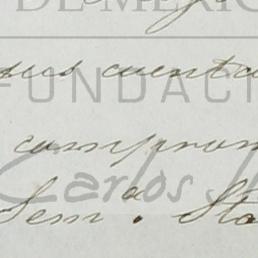 DE MÉXIC
sus cuenta
FUNDACI
comprom
Carlos
Sem.a Sta